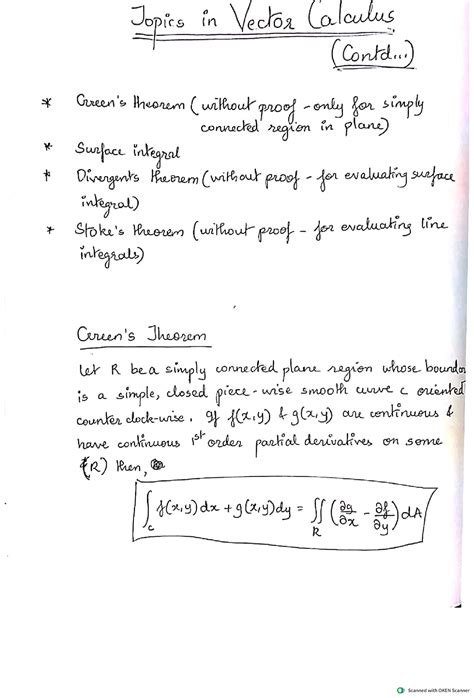 Topics in Vector Calculus
(Contd...)
* Green's theorem (without proof - only for simply
connected region in plane)
* Surface integral
* Divergents theorem (without proof - for evaluating surface
integral)
* Stoke's theorem (without proof - for evaluating line
integrals)
Green's Theorem
Let R be a simply connected plane region whose boundar
is a simple, closed piece-wise smooth curve c oriented
counter clock-wise. If f(x,y) & g(x,y) are continuous &
have continuous 1st order partial derivatives on some
(R) then,
∫c f(x,y) dx + g(x,y) dy = ∬R (∂g/∂x - ∂f/∂y) dA
Scanned with OKEN Scanner